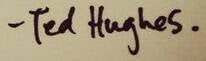 -Ted Hughes.